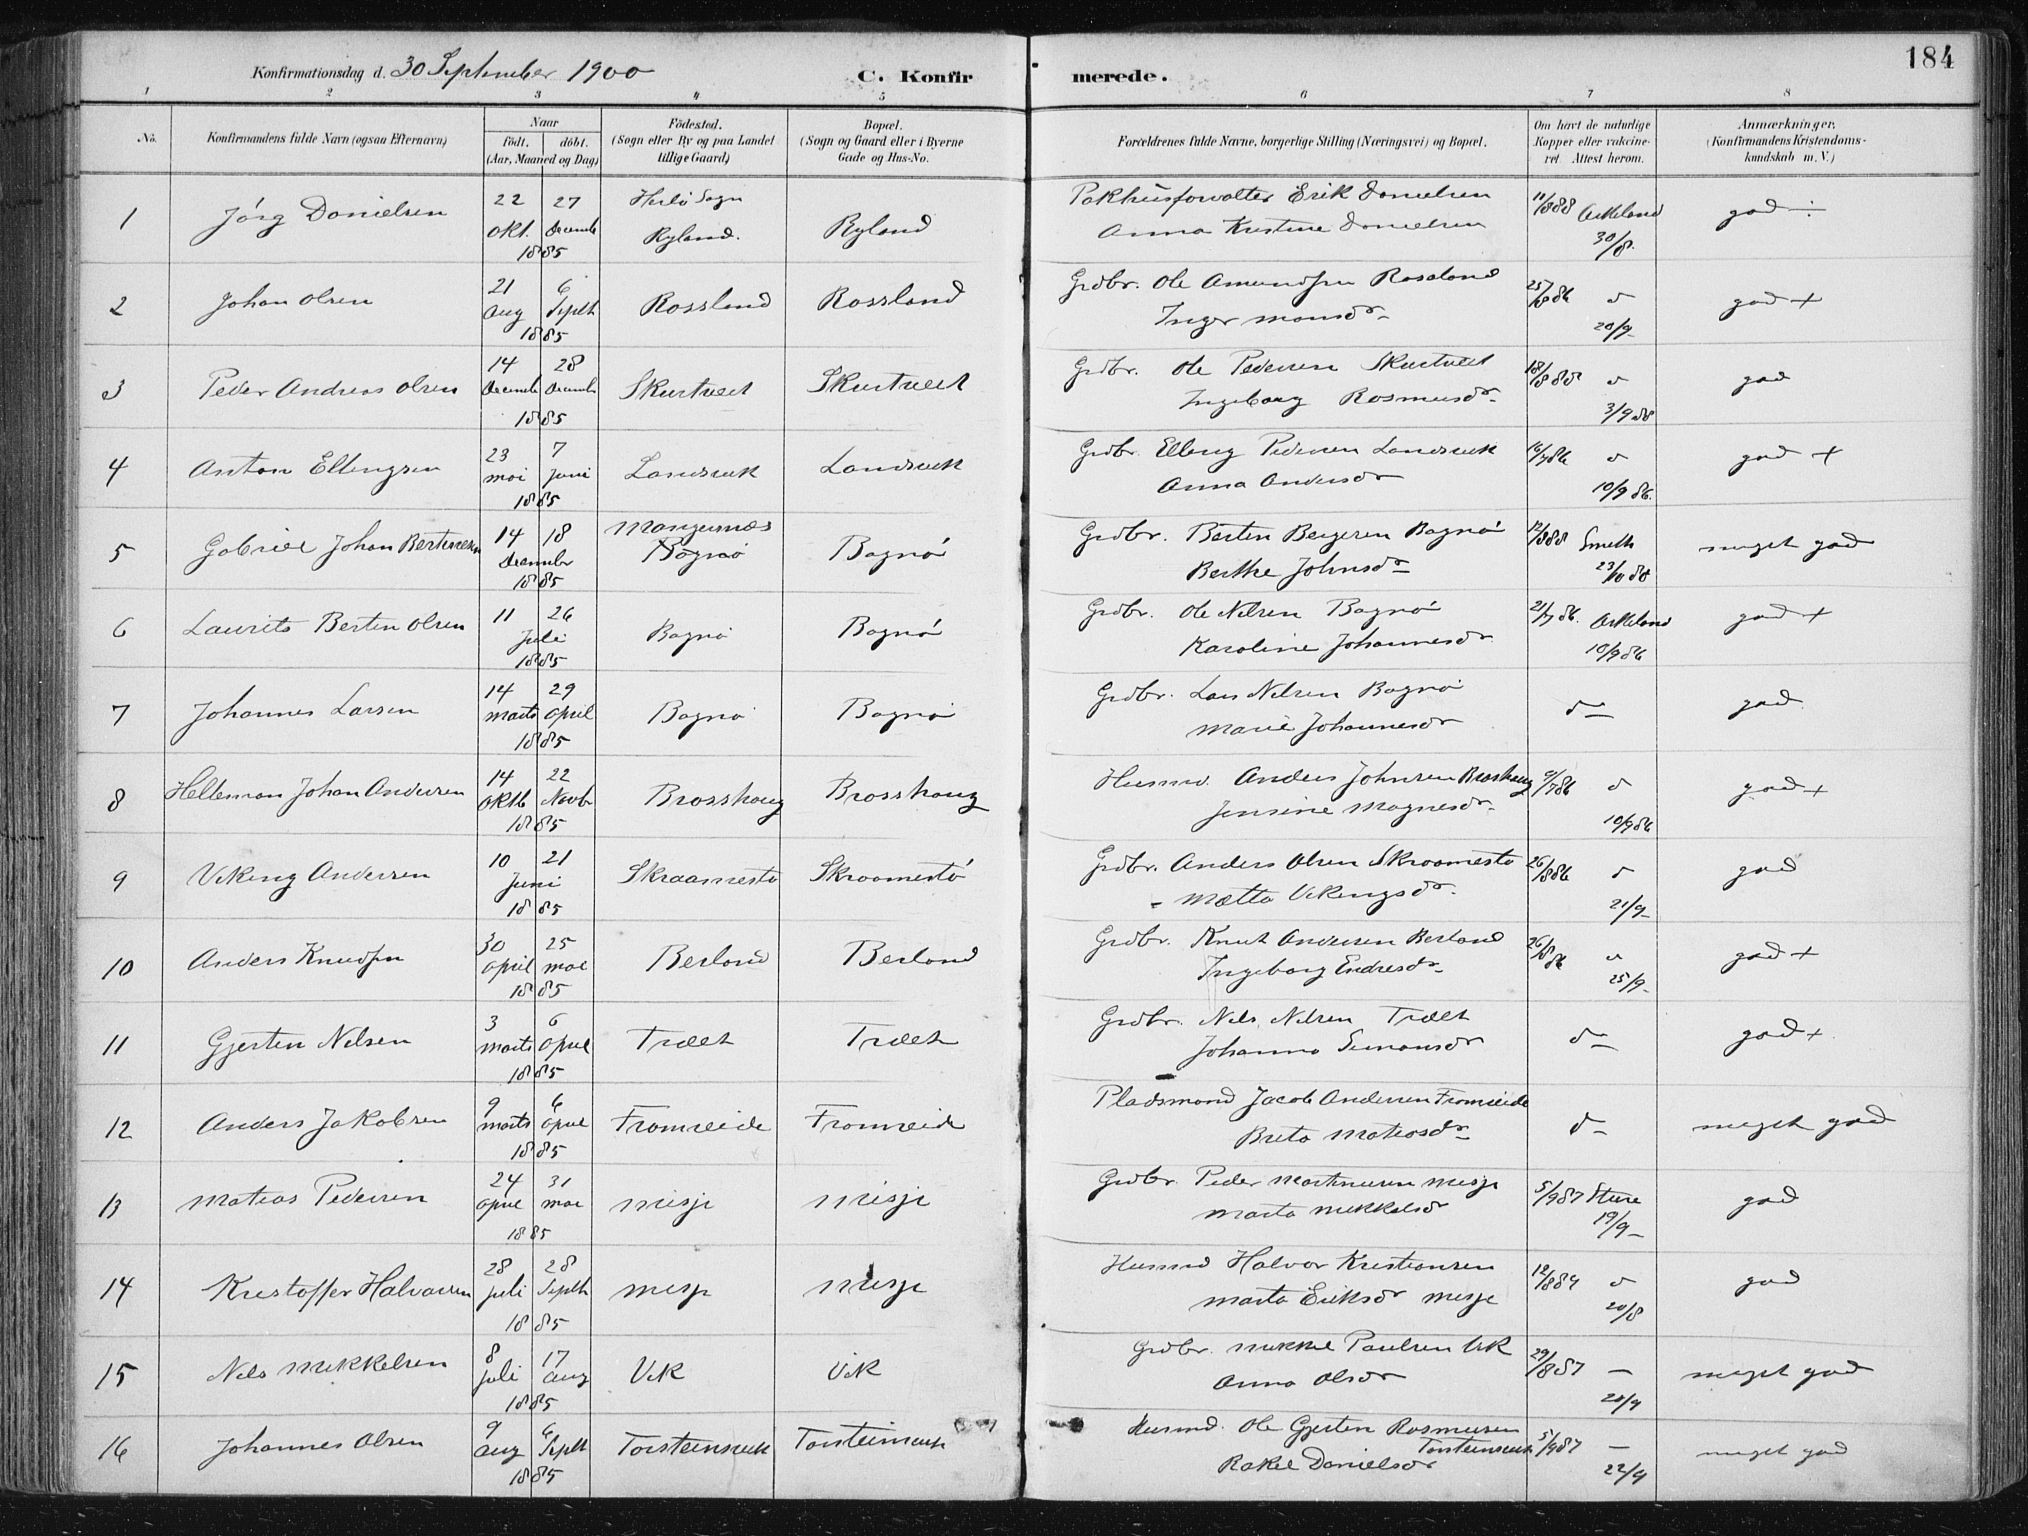 184
Konfirmationsdag d. 30 September 1900 C. Konfirmerede.
1 2 3 4 5 6 7 8
No. Konfirmandens fulde Navn (ogsaa Efternavn) Naar födt. döbt. (Aar, Maaned og Dag) Födested. (Sogn eller By og paa Landet tillige Gaard) Bopæl. (Sogn og Gaard eller i Byerne Gade og Hus-No. Forældrenes fulde Navne, borgerlige Stilling (Næringsvei) og Bopæl. Om havt de naturlige Kopper eller vakcineret. Attest herom. Anmærkninger. (Konfirmandens Kristendomskundskab m. V.)
1 Jörg Danielsen 22 Okt. 27 Decemb 1885 Herlö Sogn Ryland. Ryland Pakhusforvalter Erik Danielsen Anna Kristine Danielsen 11/8 88 Askeland 30/8. god ÷
2 Johan Olsen 21 Aug 6 Septb 1885 Rossland Rossland Grdbr. Ole Amundsen Rossland Inger Monsdr 25/8 86 d 20/9 god +
3 Peder Andreas Olsen 14 Decemb 28 Decemb 1885 Skurtveit Skurtveit Grdbr. Ole Pedersen Skurtveit Ingeborg Rasmusdr 18/8 88 d 3/9 88 god
4 Anton Ellingsen 23 Mai 7 Juni 1885 Landsvik Landsvik Grdbr. Elling Pedersen Landsvik Anna Andersdr 16/7 86 d 10/9 86. god +
5 Gabriel Johan Bertinsen 14 18 December 1885 Mangernæs Bognö Bognö Grdbr. Bertin Bergesen Bognö Berthe Johnsdr 12/8 88 Smith 23/10 88 meget god
6 Laurits Bertin Olsen 11 26 Juli 1885 Bognö Bognö Grdbr. Ole Nilsen Bognö Karoline Johannesdr 21/7 86. Askeland 10/9 86 god +
7 Johannes Larsen 14 Marts 29 April 1885 Bognö Bognö Grdbr. Lars Nilsen Bognö Marie Johannesdr d god
8 Helleman Johan Andersen 14 Oktb 22 Novb 1885 Brosshaug Brosshaug Husmd. Anders Johnsen Brosshaug Jensine Magnesdr 9/7 86 d 10/9 86 god +
9 Viking Andersen 10 21 Juni 1885 Skraamestö Skraamestö Grdbr. Anders Olsen Skraamestö Mætta Vikingsdr. 26/8 86 d 21/9 god
10 Anders Knudsen 30 April 25 Mai 1885 Berland Berland Grdbr. Knut Andersen Berland Ingeborg Endresdr 26/8 86 d 25/9 god +
11 Gjertin Nilsen 3 Marts 6 April 1885 Træet Træet Grdbr. Nils Nilsen Træet Johanna Simonsdr d god +
12 Anders Jakobsen 9 Marts 6 April 1885 Fromreide Fromreide Pladsmand Jacob Andersen Fromreide Brita Matiasdr d meget god
13 Matias Pedersen 24 April 31 Mai 1885 Misje Misje Grdbr. Peder Martinusen Misje Marta Mikkelsdr 5/9 87 Sture 19/9 god
14 Kristoffer Halvorsen 28 Juli 28 Septb 1885 Misje Misje Husmd Halvor Kristiansen Marta Eriksdr Misje 12/8 84 d 20/8 god
15 Nils Mikkelsen 8 Juli 17 Aug 1885 Vik Vik Grdbr. Mikkel Paulsen Vik Anna Olsdr 29/8 87 — 20/9 meget god
16 Johannes Olsen 9 Aug 6 Septb 1885 Torsteinsvik Torsteinsvik Husmd. Ole Gjertin Rasmusen Torsteinsvik Rakel Danielsdr 5/9 87 — 22/9 meget god